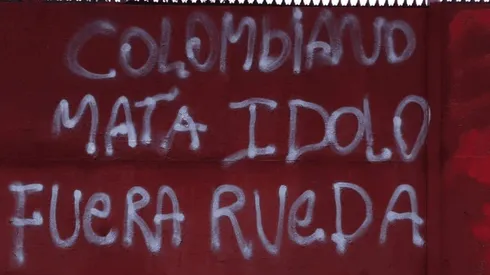 COLOMBIANO
MATÁ IDOLO
FUERA RUEDA